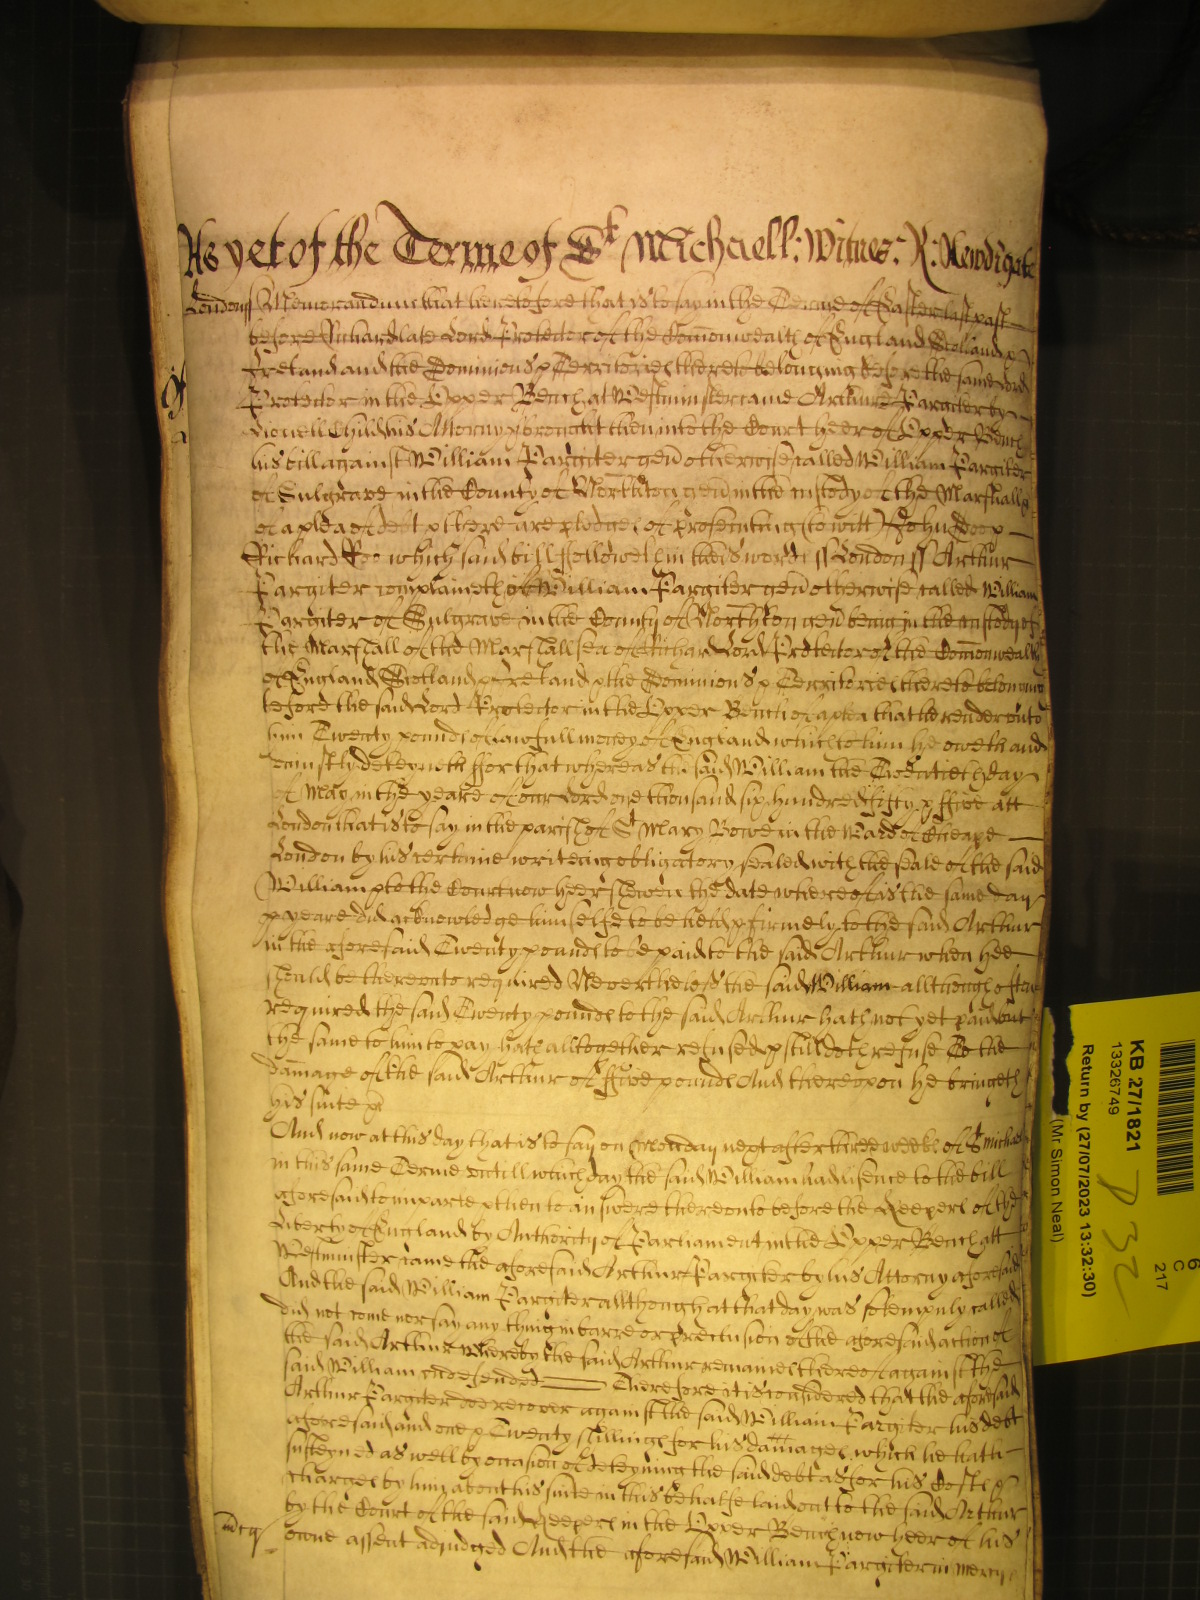 As yet of the Terme of St Michaell: Witnes: R: Newdigate
London ss Memorandum that heretofore that is to say in the Terme of Easter last past
before Richard late Lord Protector of the Comonwealth of England Scotland &
Ireland and the Dominions & Territories thereto belonging before the same Lord
Protector in the Upper Bench at Westminster came Arthure Pargiter by
Lionell Child his Attorny & brought then into the Court heer of Upper Bench
his bill against William Pargiter gen otherwise called William Pargiter
of Sulgrave in the County of Northton gen in the custody of the Marshall &
of a plea of debt & there are pledges of prosecuting (to witt) John Doo &
Richard Roo which said bill followeth in theis words ss London ss Arthur
Pargiter complaineth of William Pargiter gen otherwise called William
Pargiter of Sulgrave in the County of Northton gen being in the custody of
the Marshall of the Marshallsea of Richard Lord Protector of the Comonwealth
of England Scotland & Ireland & the Dominions & Territories thereto belonging
before the said Lord Protector in the Upper Bench of a plea that he render unto
him Twenty pounds of lawfull money of England which to him he oweth and
uniustly deteyneth ffor that whereas the said William the Twentieth day
of May in the yeare of our Lord one thousand six hundred fifty & ffive att
London that is to say in the parish of St Mary Bowe in the Ward of Cheape
London by his certaine writeing obligatory sealed with the seale of the said
William & to the Court now heer shewen the date whereof is the same day
& yeare did acknowledge himselfe to be held & firmely to the said Arthur
in the aforesaid Twenty pounds to be paid to the said Arthur when hee
should be thereonto required Nevertheless the said William allthough often
required the said Twenty pounds to the said Arthur hath not yet paid but
the same to him to pay hath alltogether refused & still doth refuse To the
damage of the said Arthur of ffive pounds And thereopon he bringeth
his suite &c
And now at this day that is to say on Monday next after three weeks of St Michaell
in this same Terme untill which day the said William had lisence to the bill
aforesaid to imparle & then to answere thereonto before the Keepers of the
Liberty of England by Authority of Parliament in the Upper Bench att
Westminster came the aforesaid Arthur Pargiter by his Attorny aforesaid
And the said William Pargiter allthough at that day was solempnly called
did not come nor say any thing in barre or preclusion of the aforesaid action of
the said Arthur Whereby the said Arthur remaines thereof against the
said William undefended Therefore it is considered that the aforesaid
Arthur Pargiter doe recover against the said William Pargiter his debt
aforesaid and one & Twenty shillings for his damages which he hath
susteyned as well by occasion of deteyning the said debt as for his Costs &
charges by him about his suite in this behalfe laid out to the said Arthur
by the Court of the said Keepers in the Upper Bench now heer of his
owne assent adiudged And the aforesaid William Pargiter in mercy
KB 27/1821
13326749
Return by (27/07/2023 13:32:30)
(Mr Simon Neal)
6
C
217
P 32